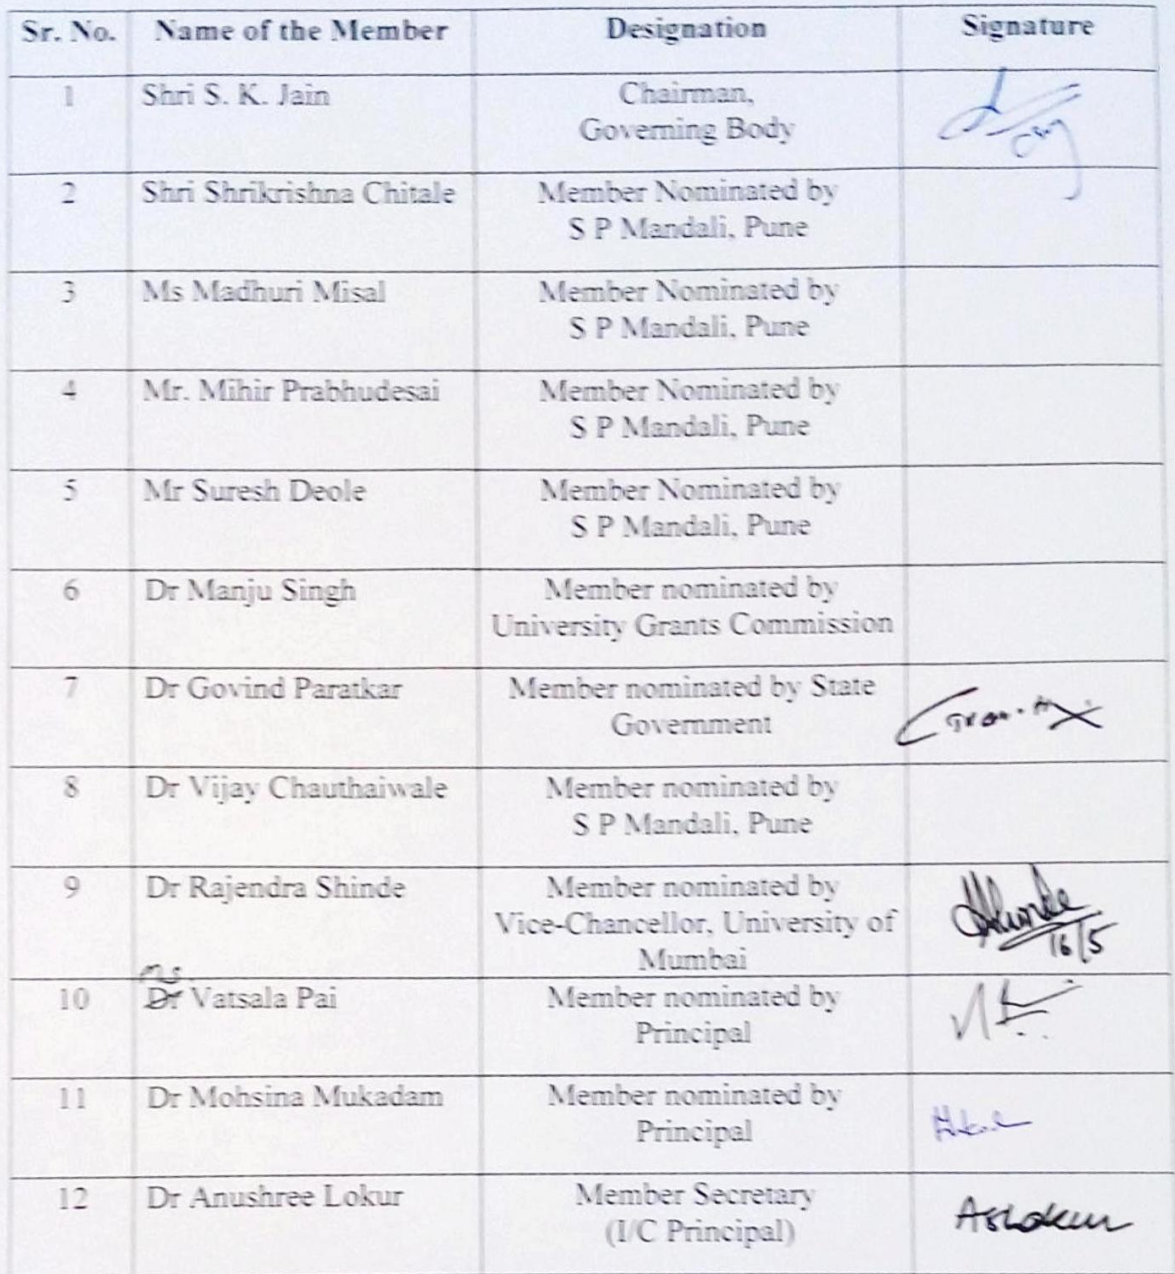 Sr. No. Name of the Member Designation Signature
1 Shri S. K. Jain Chairman,
Governing Body
2 Shri Shrikrishna Chitale Member Nominated by
S P Mandali, Pune
3 Ms Madhuri Misal Member Nominated by
S P Mandali, Pune
4 Mr. Mihir Prabhudesai Member Nominated by
S P Mandali, Pune
5 Mr Suresh Deole Member Nominated by
S P Mandali, Pune
6 Dr Manju Singh Member nominated by
University Grants Commission
7 Dr Govind Paratkar Member nominated by State
Government
8 Dr Vijay Chauthaiwale Member nominated by
S P Mandali, Pune
9 Dr Rajendra Shinde Member nominated by
Vice-Chancellor, University of
Mumbai
16/5
ms
10 Dr Vatsala Pai Member nominated by
Principal
11 Dr Mohsina Mukadam Member nominated by
Principal
12 Dr Anushree Lokur Member Secretary
(I/C Principal)